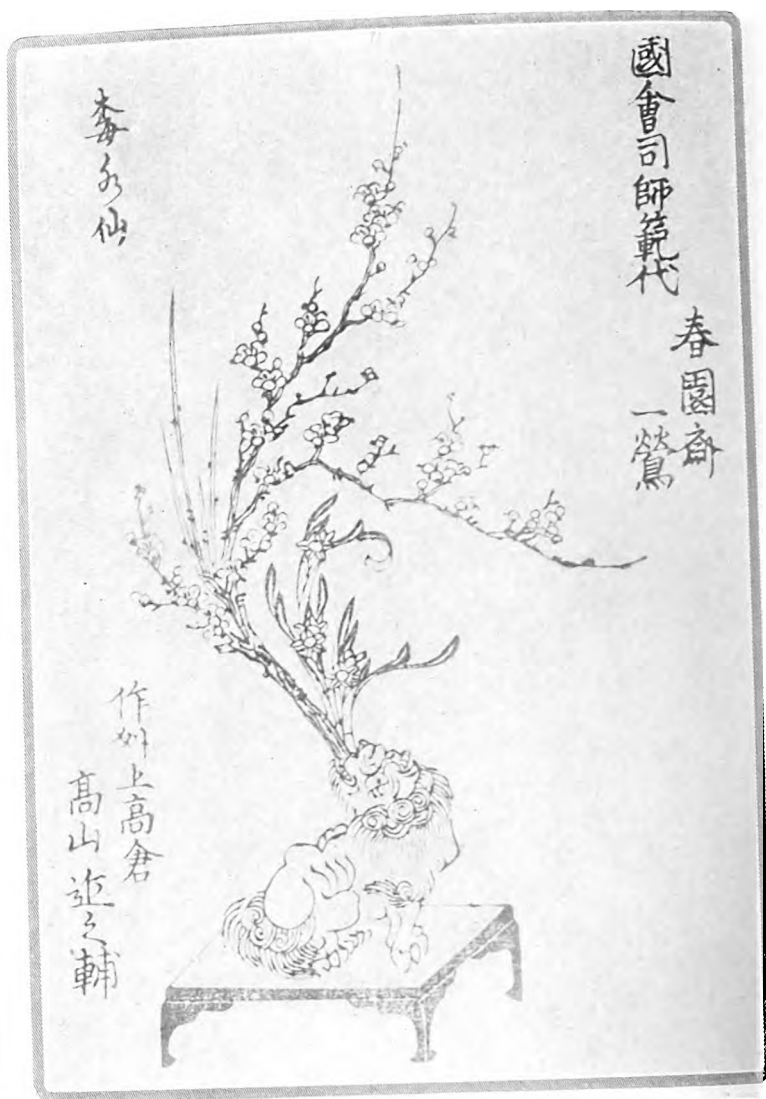 國會司師範代
春園斎
一鶯
梅水仙
作州上高倉
高山近之輔